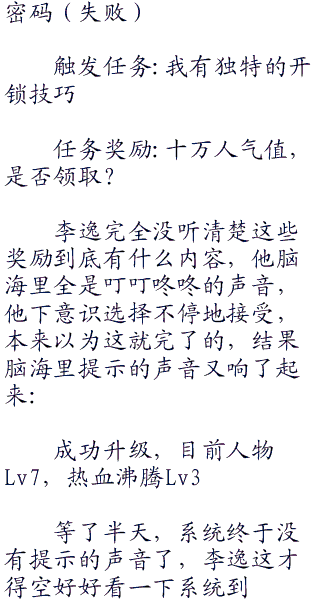 密码（失败）
触发任务：我有独特的开
锁技巧
任务奖励：十万人气值，
是否领取？
李逸完全没听清楚这些
奖励到底有什么内容，他脑
海里全是叮叮咚咚的声音，
他下意识选择不停地接受，
本来以为这就完了的，结果
脑海里提示的声音又响了起
来：
成功升级，目前人物
Lv7，热血沸腾Lv3
等了半天，系统终于没
有提示的声音了，李逸这才
得空好好看一下系统到